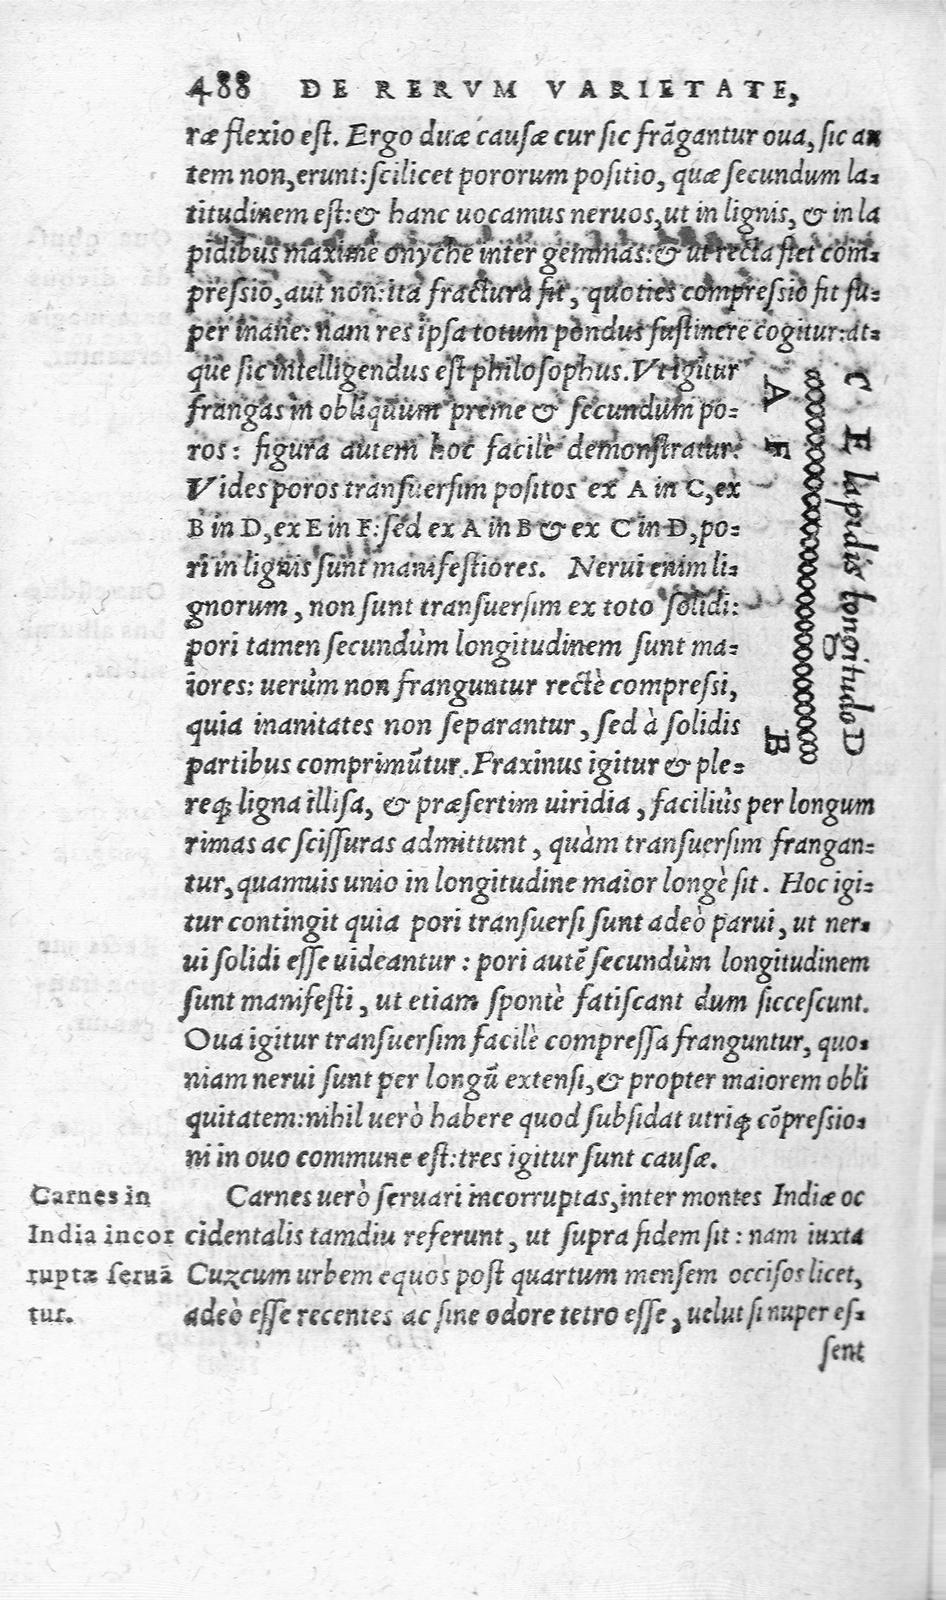 488 DE RERVM VARIETATE,
ræ flexio est. Ergo duæ causæ cur sic frãgantur oua, sic au
tem non, erunt: scilicet pororum positio, quæ secundum la-
titudinem est: & hanc uocamus neruos, ut in lignis, & in la
pidibus maximè onyche inter gemmas: & ut recta stet com-
pressio, aut non: ita fractura fit, quoties compressio fit su-
per inane: nam res ipsa totum pondus sustinere cogitur: at-
que sic intelligendus est philosophus. Vt igitur
frangas in obliquum preme & secundum po-
ros: figura autem hoc facilè demonstratur.
Vides poros transuersim positos ex A in C, ex
B in D, ex E in F: sed ex A in B & ex C in D, po-
ri in lignis sunt manifestiores. Nerui enim li-
gnorum, non sunt transuersim ex toto solidi:
pori tamen secundùm longitudinem sunt ma-
iores: uerùm non franguntur rectè compressi,
quia inanitates non separantur, sed à solidis
partibus comprimũtur. Fraxinus igitur & ple-
C E lapidis longitudo D
A F B
req́; ligna illisa, & præsertim uiridia, faciliùs per longum
rimas ac scissuras admittunt, quàm transuersim frangan-
tur, quamuis unio in longitudine maior longè sit. Hoc igi-
tur contingit quia pori transuersi sunt adeò parui, ut ner-
ui solidi esse uideantur: pori autẽ secundùm longitudinem
sunt manifesti, ut etiam spontè fatiscant dum siccescunt.
Oua igitur transuersim facilè compressa franguntur, quo-
niam nerui sunt per longũ extensi, & propter maiorem obli
quitatem: nihil uerò habere quod subsidat utriq́; cõpressio-
ni in ouo commune est: tres igitur sunt causæ.
Carnes in
India incor
ruptæ seruã
tur.
Carnes uerò seruari incorruptas, inter montes Indiæ oc
cidentalis tamdiu referunt, ut supra fidem sit: nam iuxta
Cuzcum urbem equos post quartum mensem occisos licet,
adeò esse recentes ac sine odore tetro esse, uelut si nuper es-
sent